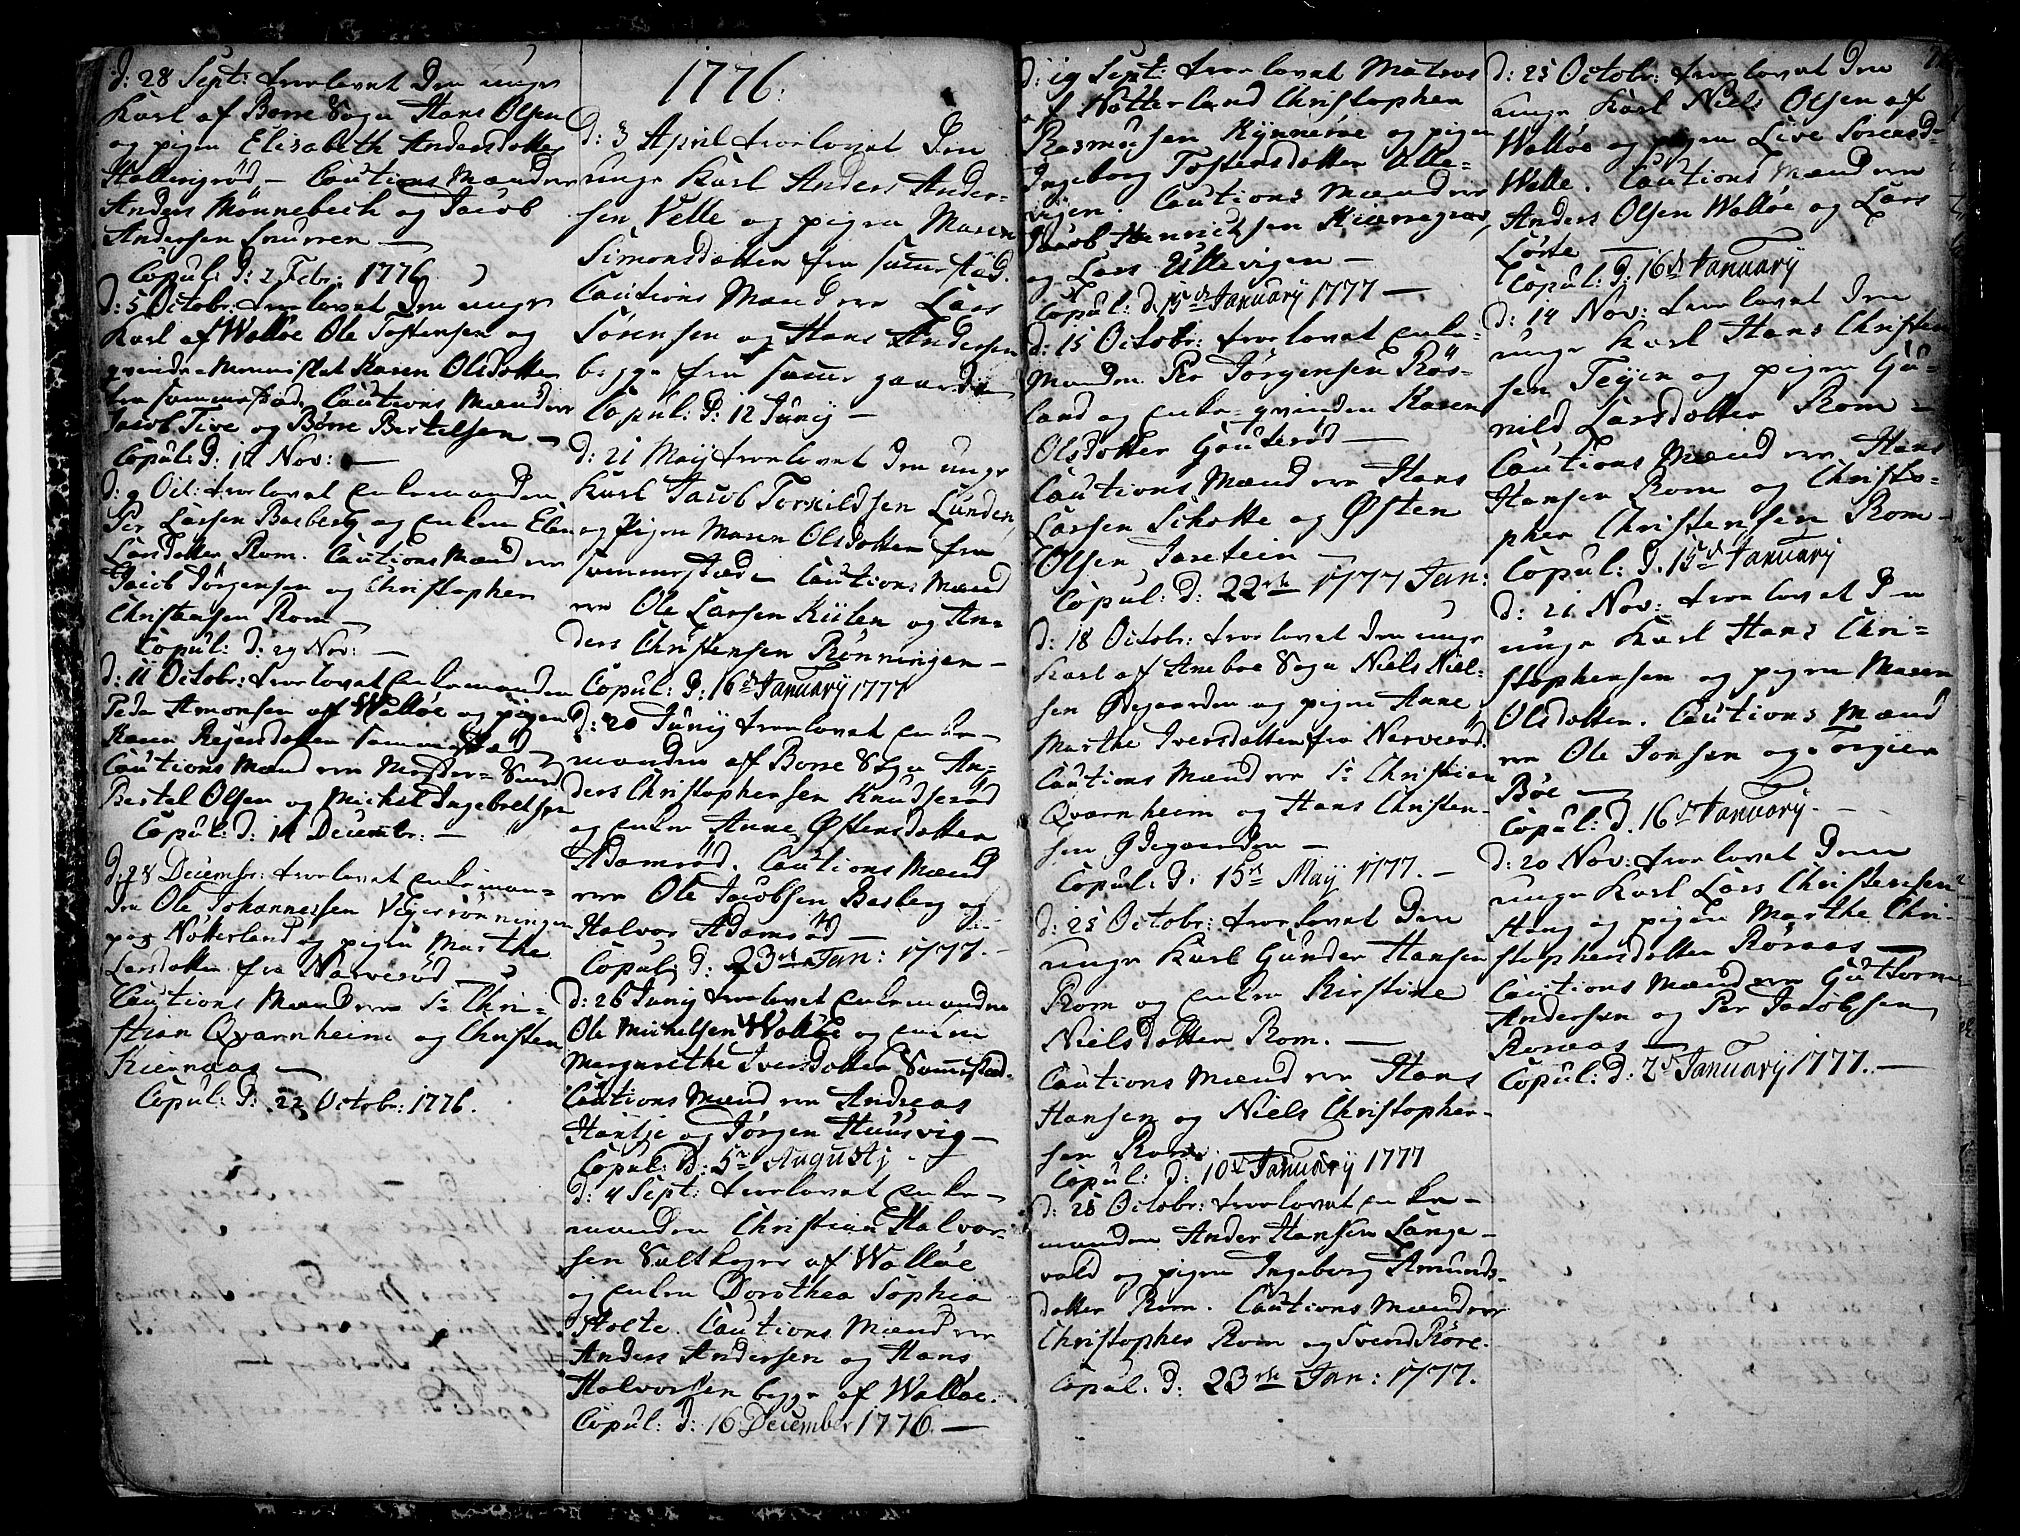 d: 28 Sept: trorlovet den unge
Karl af Borre Sogn Hans Olsen
og pigen Elisabeth Andersdotter
Cautions Mænd ere
Anders Mönnebech og Jacob
Andersen Snurren —
Copul: d: 2 Febr: 1776
d: 5 Octobr: trorlovet den unge
Karl af Walløe Ole Tostensen og
qvinde-Mennisket Karen Olsdotter
fra Sammestæd. Cautions Mænd ere
Jacob Tive og Börre Bertelsen —
Copul: d: 11 Nov: —
d: 9 Oct: trorlovet Enkemanden
Per Larsen Basberg og Enken Elen
Larsdotter Rom. Cautions Mænd ere
Jacob Jörgensen og Christopher
Christensen Rom —
Copul: d: 29 Nov: —
d: 11 Octobr: trorlovet Enkemanden
Peder Amonsen af Walløe og pigen
Karen Rejersdotter Sammestæd
Cautions Mænd ere Mester-Smed
Bertel Olsen og Michel Ingebretsen
Copul: d: 14 Decembr: —
d: 28 Decembr: trorlovet Enkeman-
den Ole Johannessen Vejerrönningen
paa Nötterland og pigen Marthe
Larsdotter fra Narverød —
Cautions Mænd ere Sr Chri-
stian Qvarnheim og Christen
Kiernaas —
Copul: d: 22 Octobr: 1776.
1776:
d: 3 April trorlovet den
unge Karl Anders Ander-
sen Velle og pigen Maren
Simonsdotter fra sammestæd.
Cautions Mænd ere Lars
Sörensen og Hans Andersen
begge fra samme gaard —
Copul: d: 12 Junij —
d: 21 Maij trorlovet den unge
Karl Jacob Torkildsen Lunden
og Pigen Maren Olsdotter fra
sammestæd. Cautions Mænd
ere Ole Larsen Kiilen og An-
ders Christensen Rönningen —
Copul: d: 16d January 1777
d: 20 Junij trorlovet Enke-
manden af Borre Sogn An-
ders Christophersen Knudseröd
og Enke Anne Østensdotter
Adamröd. Cautions Mænd
ere Ole Jacobsen Basberg og
Halvor Adamröd —
Copul: d: 23de Jan: 1777. —
d: 26 Junij trorlovet Enkemanden
Ole Michelsen Walløe og Enken
Margarethe Iversdotter Sammestæd.
Cautions Mænd ere Andreas
Hantje og Jörgen Huusvig —
Copul: d: 5te Augustj —
d: 4 Sept: trorlovet Enke-
manden Christian Halvor-
sen Saltkoger af Walløe
og Enke Dorothea Sophia
Holte. Cautions Mænd ere
Anders Andersen og Hans
Halvorsen begge af Walløe.
Copul: d: 16 December 1776. —
d: 19 Sept: trorlovet Matros
af Nötterland Christopher
Rasmusen Kynneröe og pigen
Ingeborg Tostensdotter Ulle-
vigen. Cautions Mænd ere
Jacob Henrichsen Kiernagaar
og Lars Ullevigen —
Copul: d. 15de January 1777 —
d: 15 Octobr: trorlovet Enke-
manden Per Jörgensen Rös-
land og Enke-qvinden Karen
Olsdotter Gauteröd —
Cautions Mænd ere Hans
Larsen Schotte og Østen
Olsen Jaretein —
Copul: d: 22de 1777 Jan:
d: 18 Octobr: trorlovet den unge
Karl af Aneboe Sogn Niels Niel-
sen Ødegaarden og pigen Anne
Marthe Iversdotter fra Narveröd.
Cautions Mænd ere Sr Christian
Qvarnheim og Hans Christen-
sen Ødegaarden —
Copul: d. 15de May 1777. —
d: 25 Octobr: trorlovet den
unge Karl Gunder Hansen
Rom og Enke Kirstine
Nielsdotter Rom. —
Cautions Mænd ere Hans
Hansen og Niels Christopher-
sen Rom.
Copul: d: 10de January 1777
d: 25 Octobr: trorlovet Enke-
manden Ander Hansen Lange-
vold og pigen Ingeborg Amunds-
dotter Rom. Cautions Mænd ere
Christopher Rom og Svend Röre.
Copul: d: 23de Jan: 1777.
d: 25 Octobr: trorlovet den
unge Karl Niels Olsen af
Walløe og pigen Live Sörensd-
Welle. Cautions Mænd ere
Anders Olsen Walløe og Lars
Lofte —
Copul: d. 16d January
d: 14 Nov: trorlovet den
unge Karl Hans Christen-
sen Tejen og pigen Gu-
nild Larsdotter Rom —
Cautions Mænd ere Hans
Hansen Rom og Christo-
pher Christensen Rom —
Copul: d. 15d January
d: 21 Nov: trorlovet den
unge Karl Hans Chri-
stophersen og pigen Maren
Olsdotter. Cautions Mænd
ere Ole Jonsen og Torgier
Böe —
Copul: d. 16d January. —
d: 20 Nov: trorlovet den
unge Karl Lars Christensen
Hang og pigen Marthe Chri-
stophersdotter Röraas —
Cautions Mænd ere Guttorm
Andersen og Per Jacobsen
Roraas —
Copul: d: 2d January 1777. —